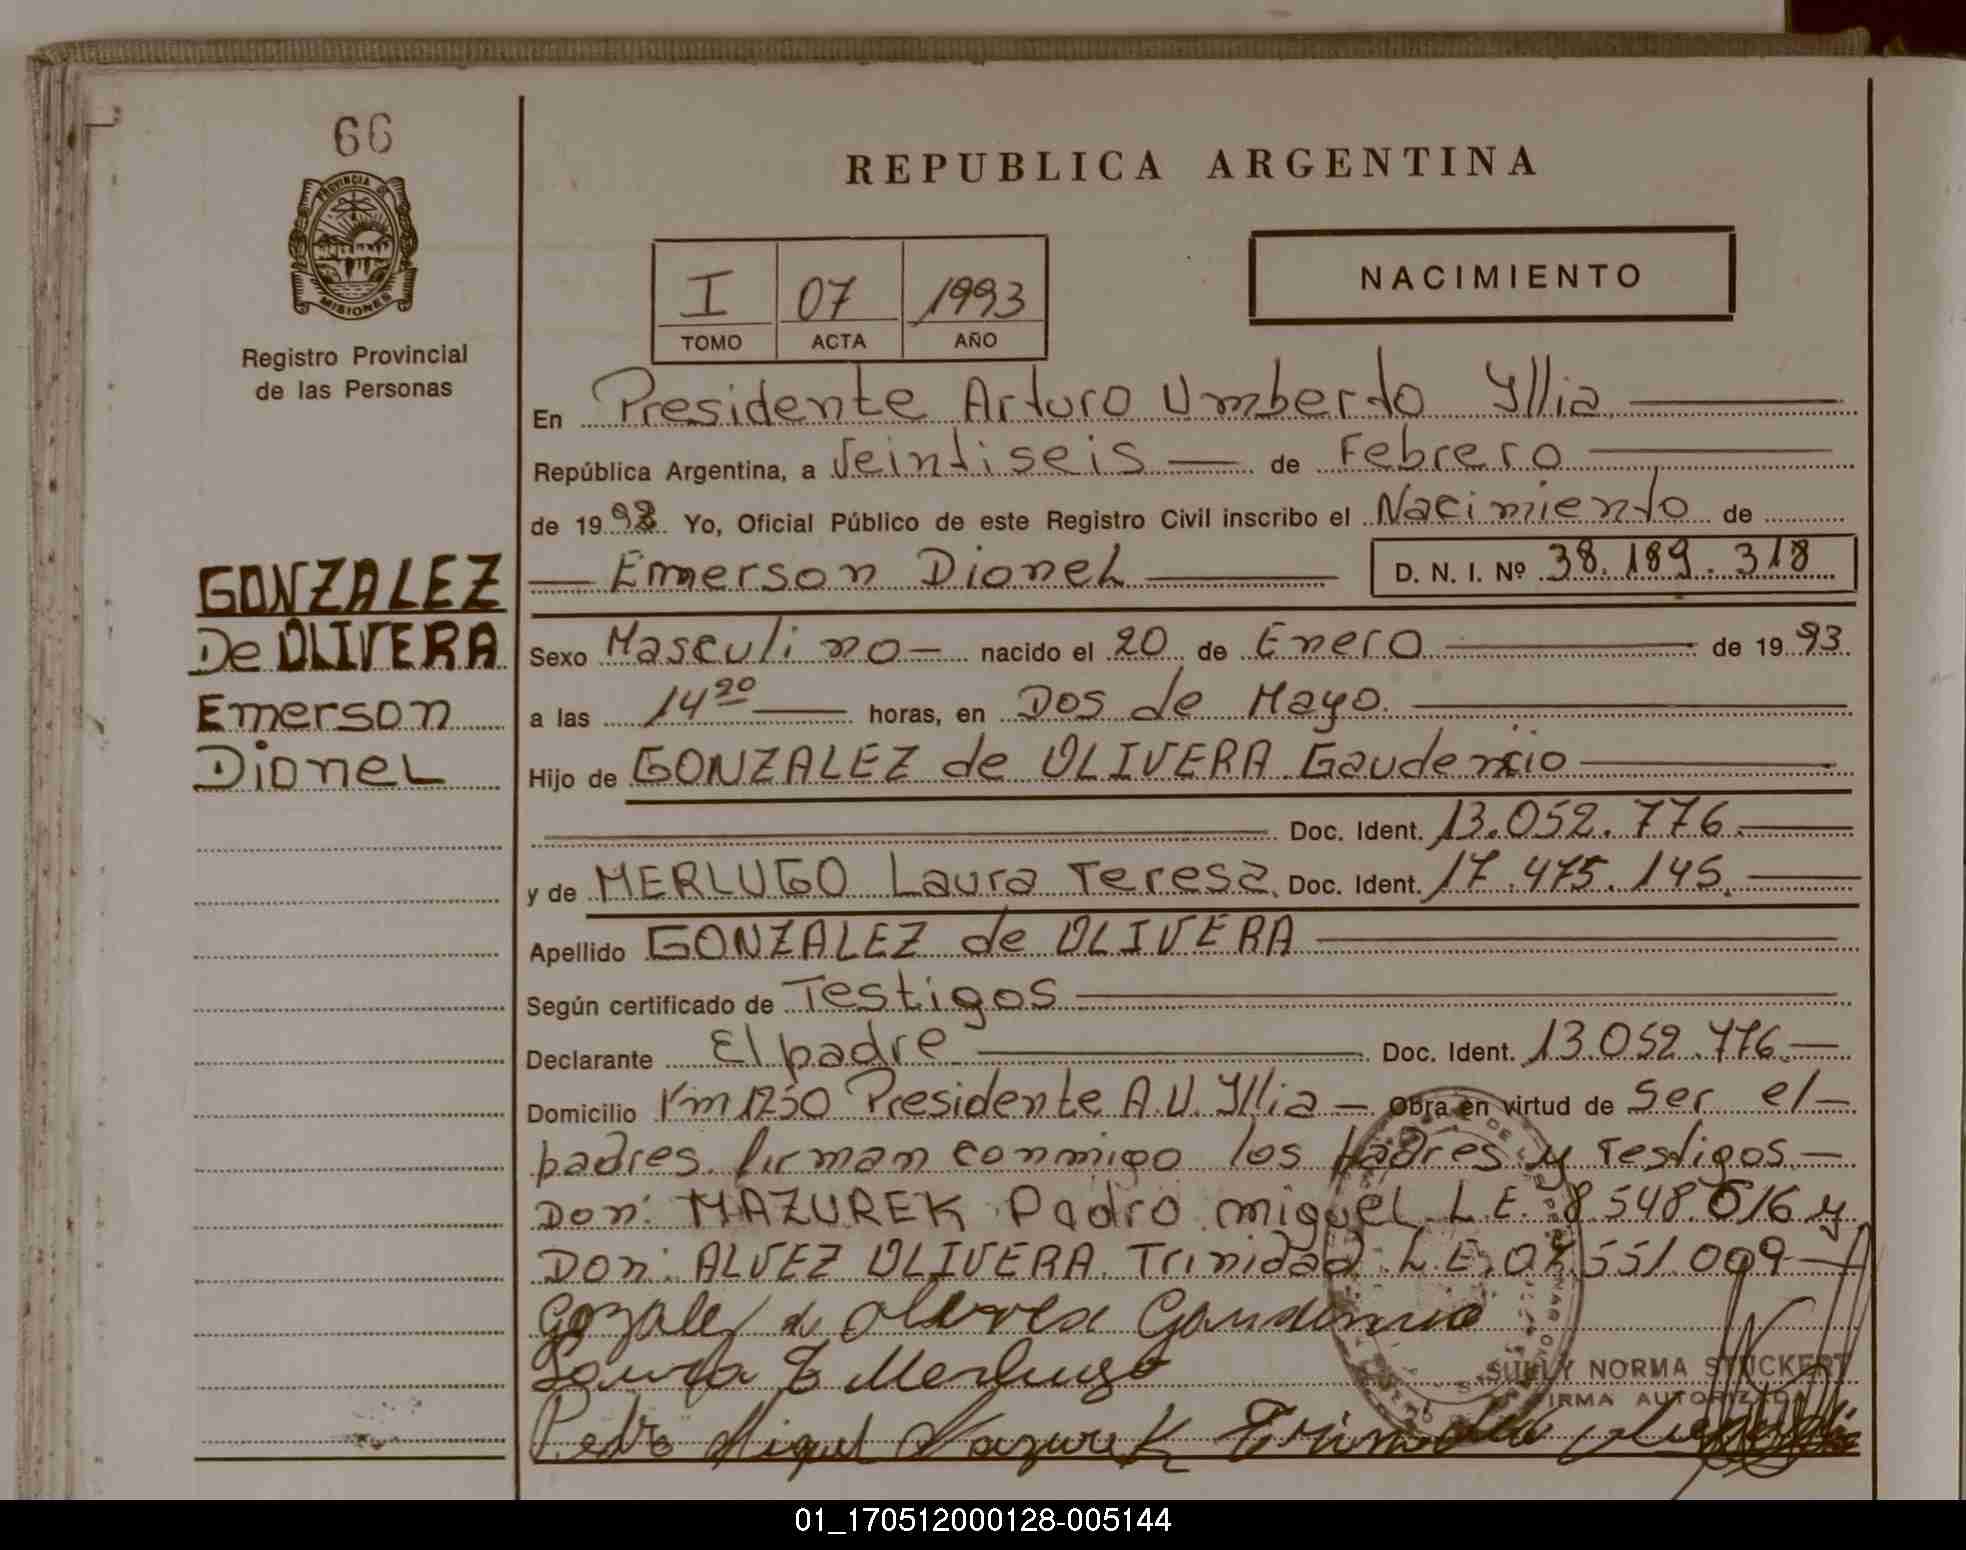 66
PROVINCIA DE
MISIONES
Registro Provincial
de las Personas
GONZALEZ
De OLIVERA
Emerson
Dionel
REPUBLICA ARGENTINA
I 07 1993
TOMO ACTA AÑO
NACIMIENTO
En Presidente Arturo Umberto Yllia
República Argentina, a Veintiseis de Febrero
de 1993 Yo, Oficial Público de este Registro Civil inscribo el Nacimiento de
Emerson Dionel D. N. I. Nº 38.189.318
Sexo Masculino nacido el 20 de Enero de 1993
a las 14 20 horas, en Dos de Mayo
Hijo de GONZALEZ de OLIVERA Gaudencio
Doc. Ident. 13.052.776
y de MERLUGO Laura Teresa Doc. Ident. 17.475.145
Apellido GONZALEZ de OLIVERA
Según certificado de Testigos
Declarante El padre Doc. Ident. 13.052.776
Domicilio Km 1250 Presidente A.U. Yllia Obra en virtud de Ser el
padres. firman conmigo los Padres y Testigos
Don: MAZUREK Pedro miguel L.E. 8.548.516 y
Don: ALVEZ OLIVERA Trinidad L.E. 551.009
Gozalez de olivera Gaudencio
Laura T Merlugo
SULLY NORMA STUCKERT
FIRMA AUTORIZADA
Pedro Miguel Mazurek
01_170512000128-005144